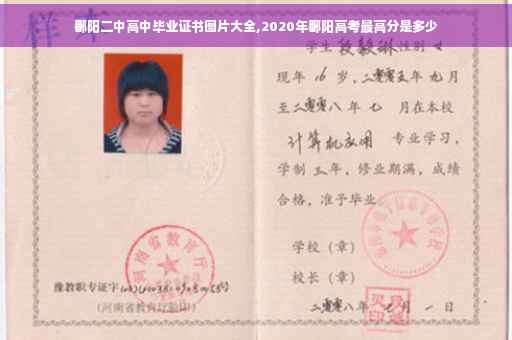 鄱阳二中高中毕业证书图片大全,2020年鄱阳高考最高分是多少
样本
学生 段毅琳 性别 女
现年 16 岁,二零零五年 九月
至二零零八年 七 月在本校
计算机应用 专业学习,
学制 三年,修业期满,成绩
合格,准予毕业
学校(章)
校长(章)
二零零八年 七月 一 日
河南省教育厅
豫教职专证字
(河南省教育厅验印)